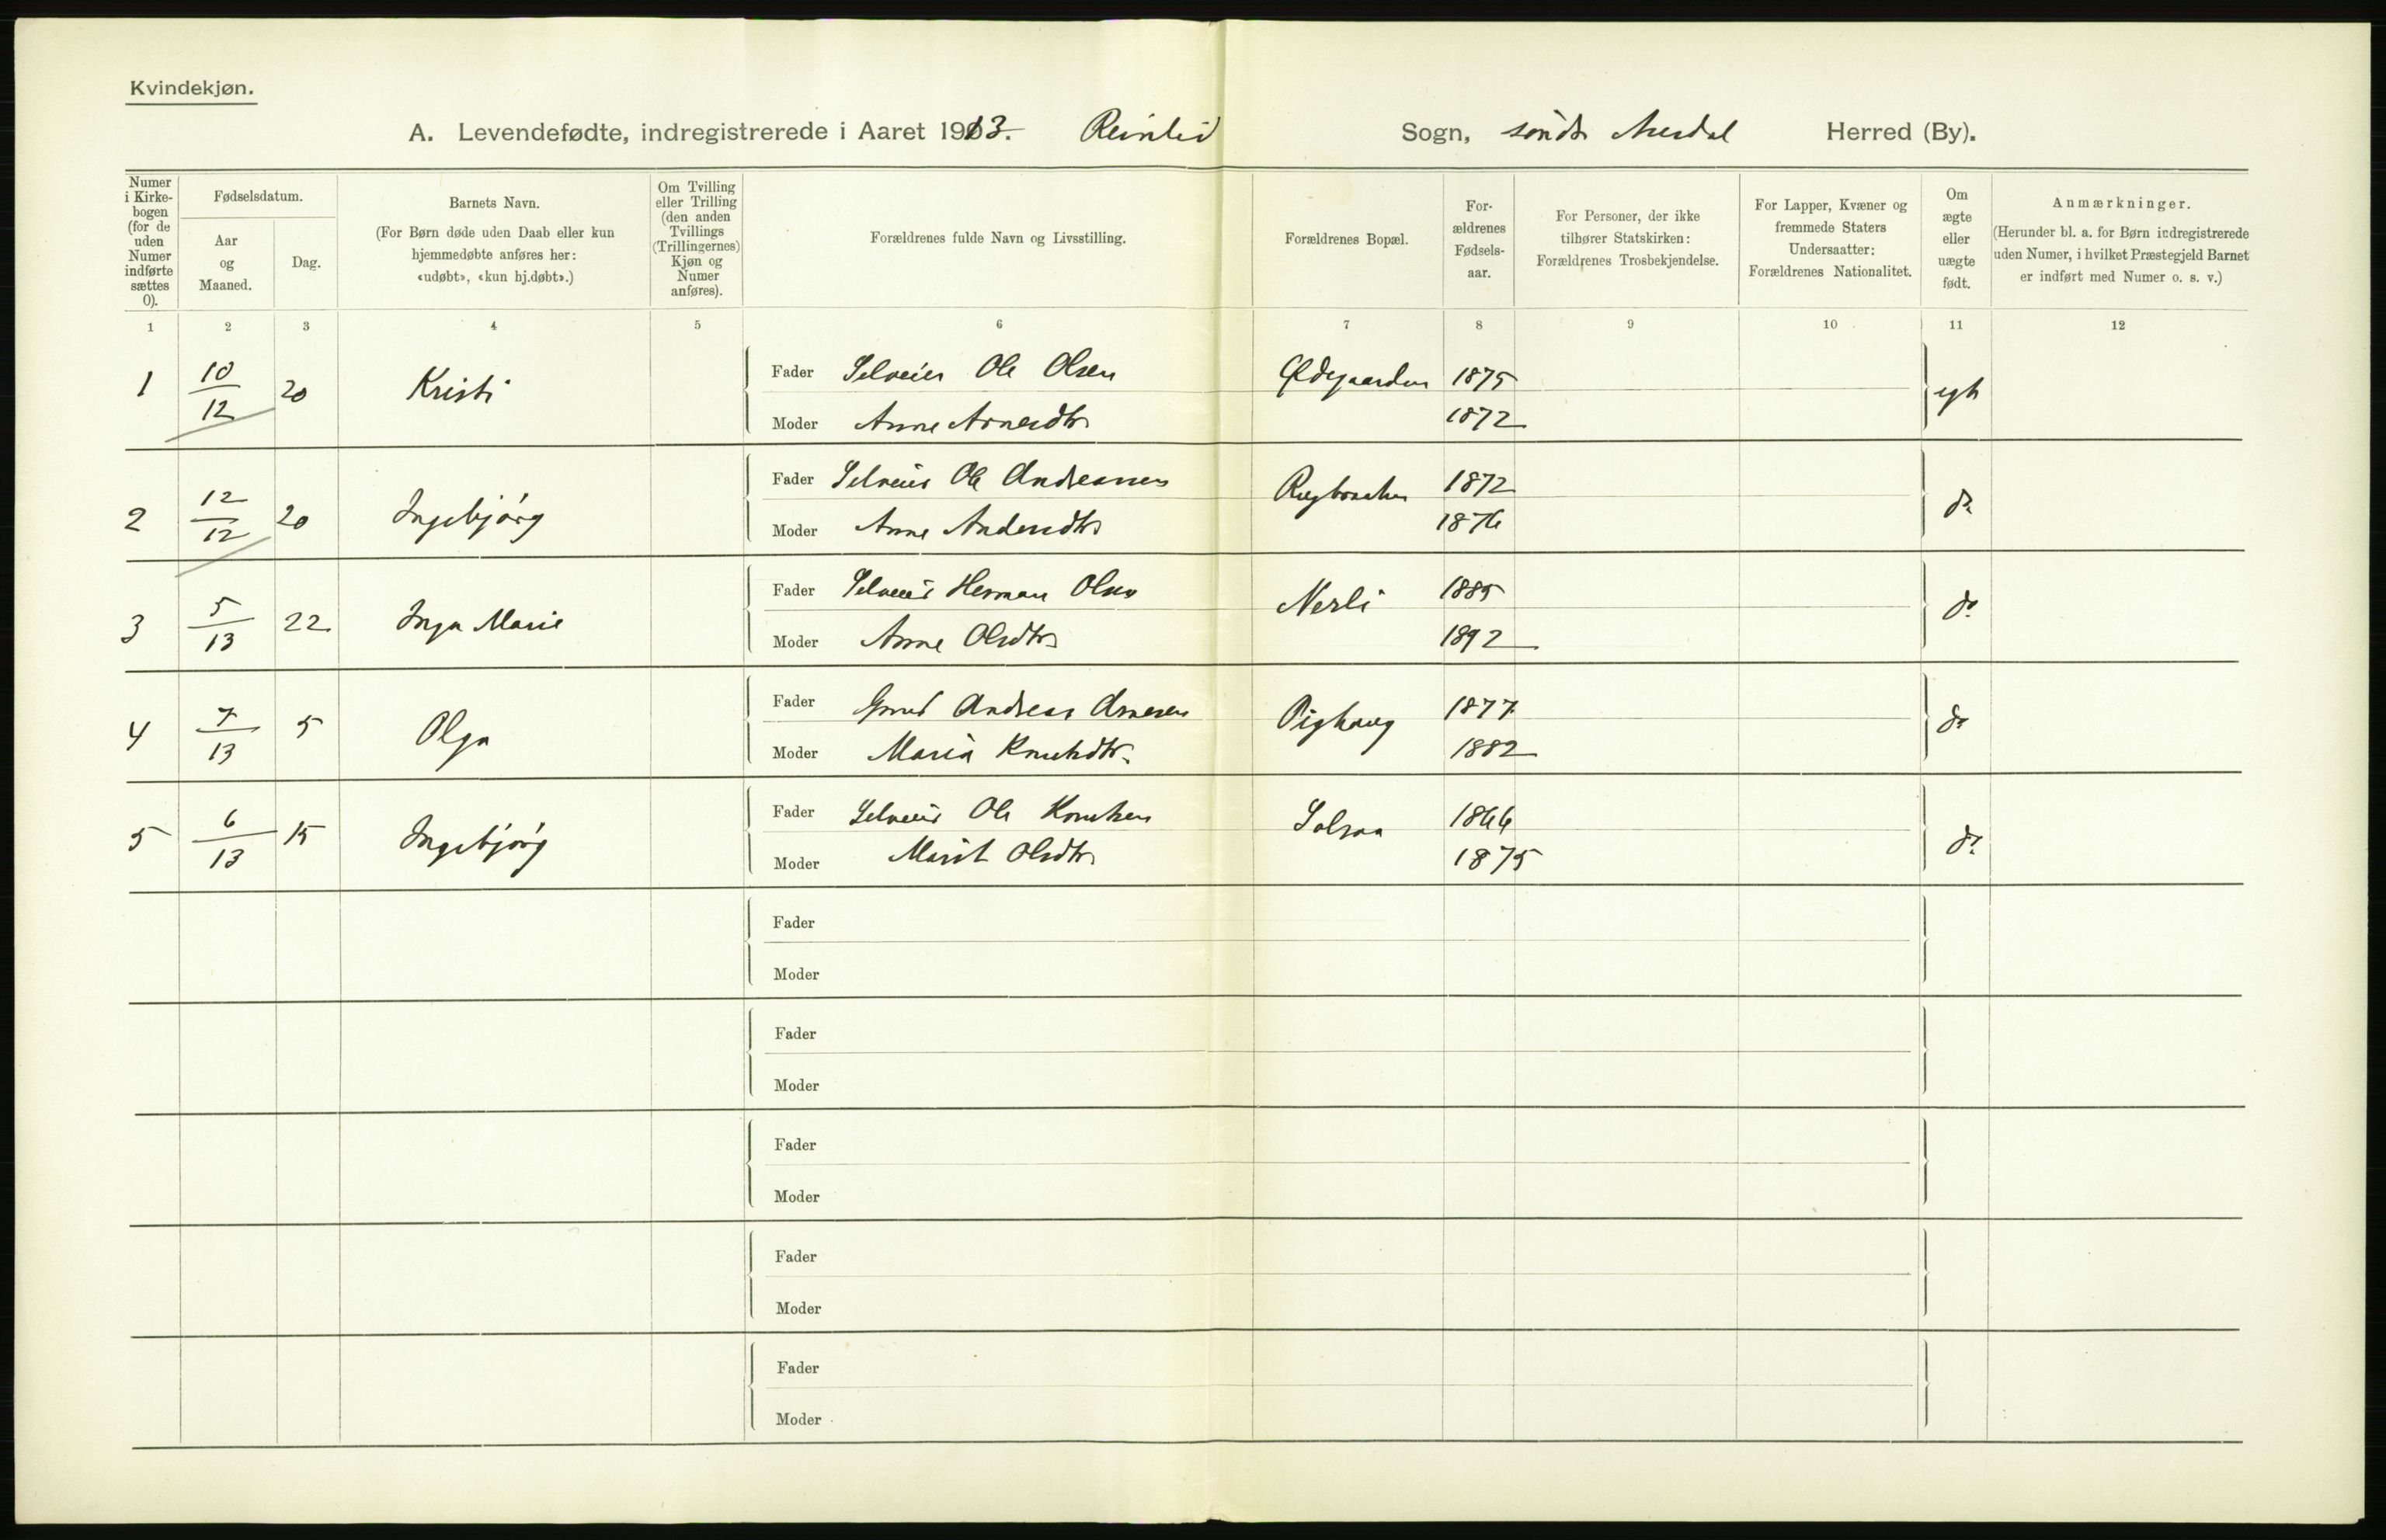 Kvindekjøn.
A. Levendefødte, indregistrerede i Aaret 1913. Reinlid Sogn, søndr Aurdal Herred (By).
Numer i Kirkebogen (for de uden Numer indførte sættes 0).
Fødselsdatum.
Aar og Maaned.
Dag.
Barnets Navn.
(For Børn døde uden Daab eller kun hjemmedøbte anføres her: «udøbt», «kun hj.døbt».)
Om Tvilling eller Trilling (den anden Tvillings (Trillingernes) Kjøn og Numer anføres).
Forældrenes fulde Navn og Livsstilling.
Forældrenes Bopæl.
Forældrenes Fødselsaar.
For Personer, der ikke tilhører Statskirken: Forældrenes Trosbekjendelse.
For Lapper, Kvæner og fremmede Staters Undersaatter: Forældrenes Nationalitet.
Om ægte eller uægte født.
Anmærkninger.
(Herunder bl. a. for Børn indregistrerede uden Numer, i hvilket Præstegjeld Barnet er indført med Numer o. s. v.)
1 2 3 4 5 6 7 8 9 10 11 12
1 10/12 20 Kristi Fader Selveier Ole Olsen Ødegaarden 1875 egt
Moder Anne Arnesdtr 1872
2 12/12 20 Ingebjørg Fader Selveier Ole Andreassen 1872 do
Moder Anne Andersdtr 1876
3 5/13 22 Inga Marie Fader Selveier Herman Olsen Nerli 1885 do
Moder Anne Olsdtr 1892
4 7/13 5 Olga Fader Gmd Andreas Arnesen Pighaug 1877 do
Moder Maria Knutsdtr. 1882
5 6/13 15 Ingebjørg Fader Selveier Ole Knutsen 1866 do
Moder Marit Olsdtr 1875
Fader
Moder
Fader
Moder
Fader
Moder
Fader
Moder
Fader
Moder